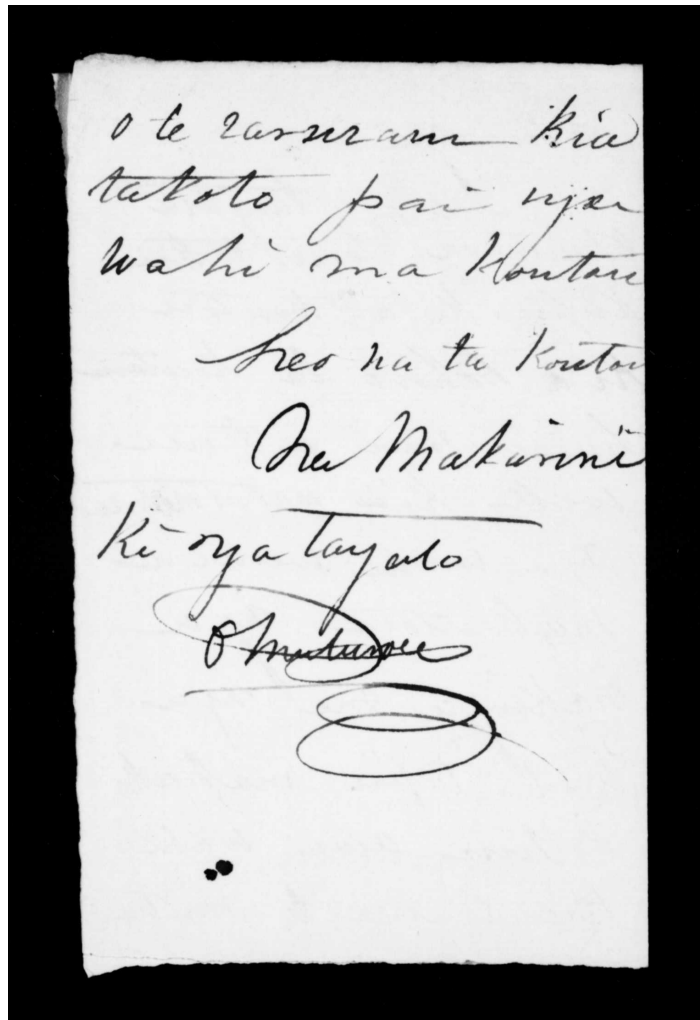 o te raruraru kia
takoto pai nga
wahi ma koutou
Heo na ta Koutou
Na Makarini
Ki nga tangata
O